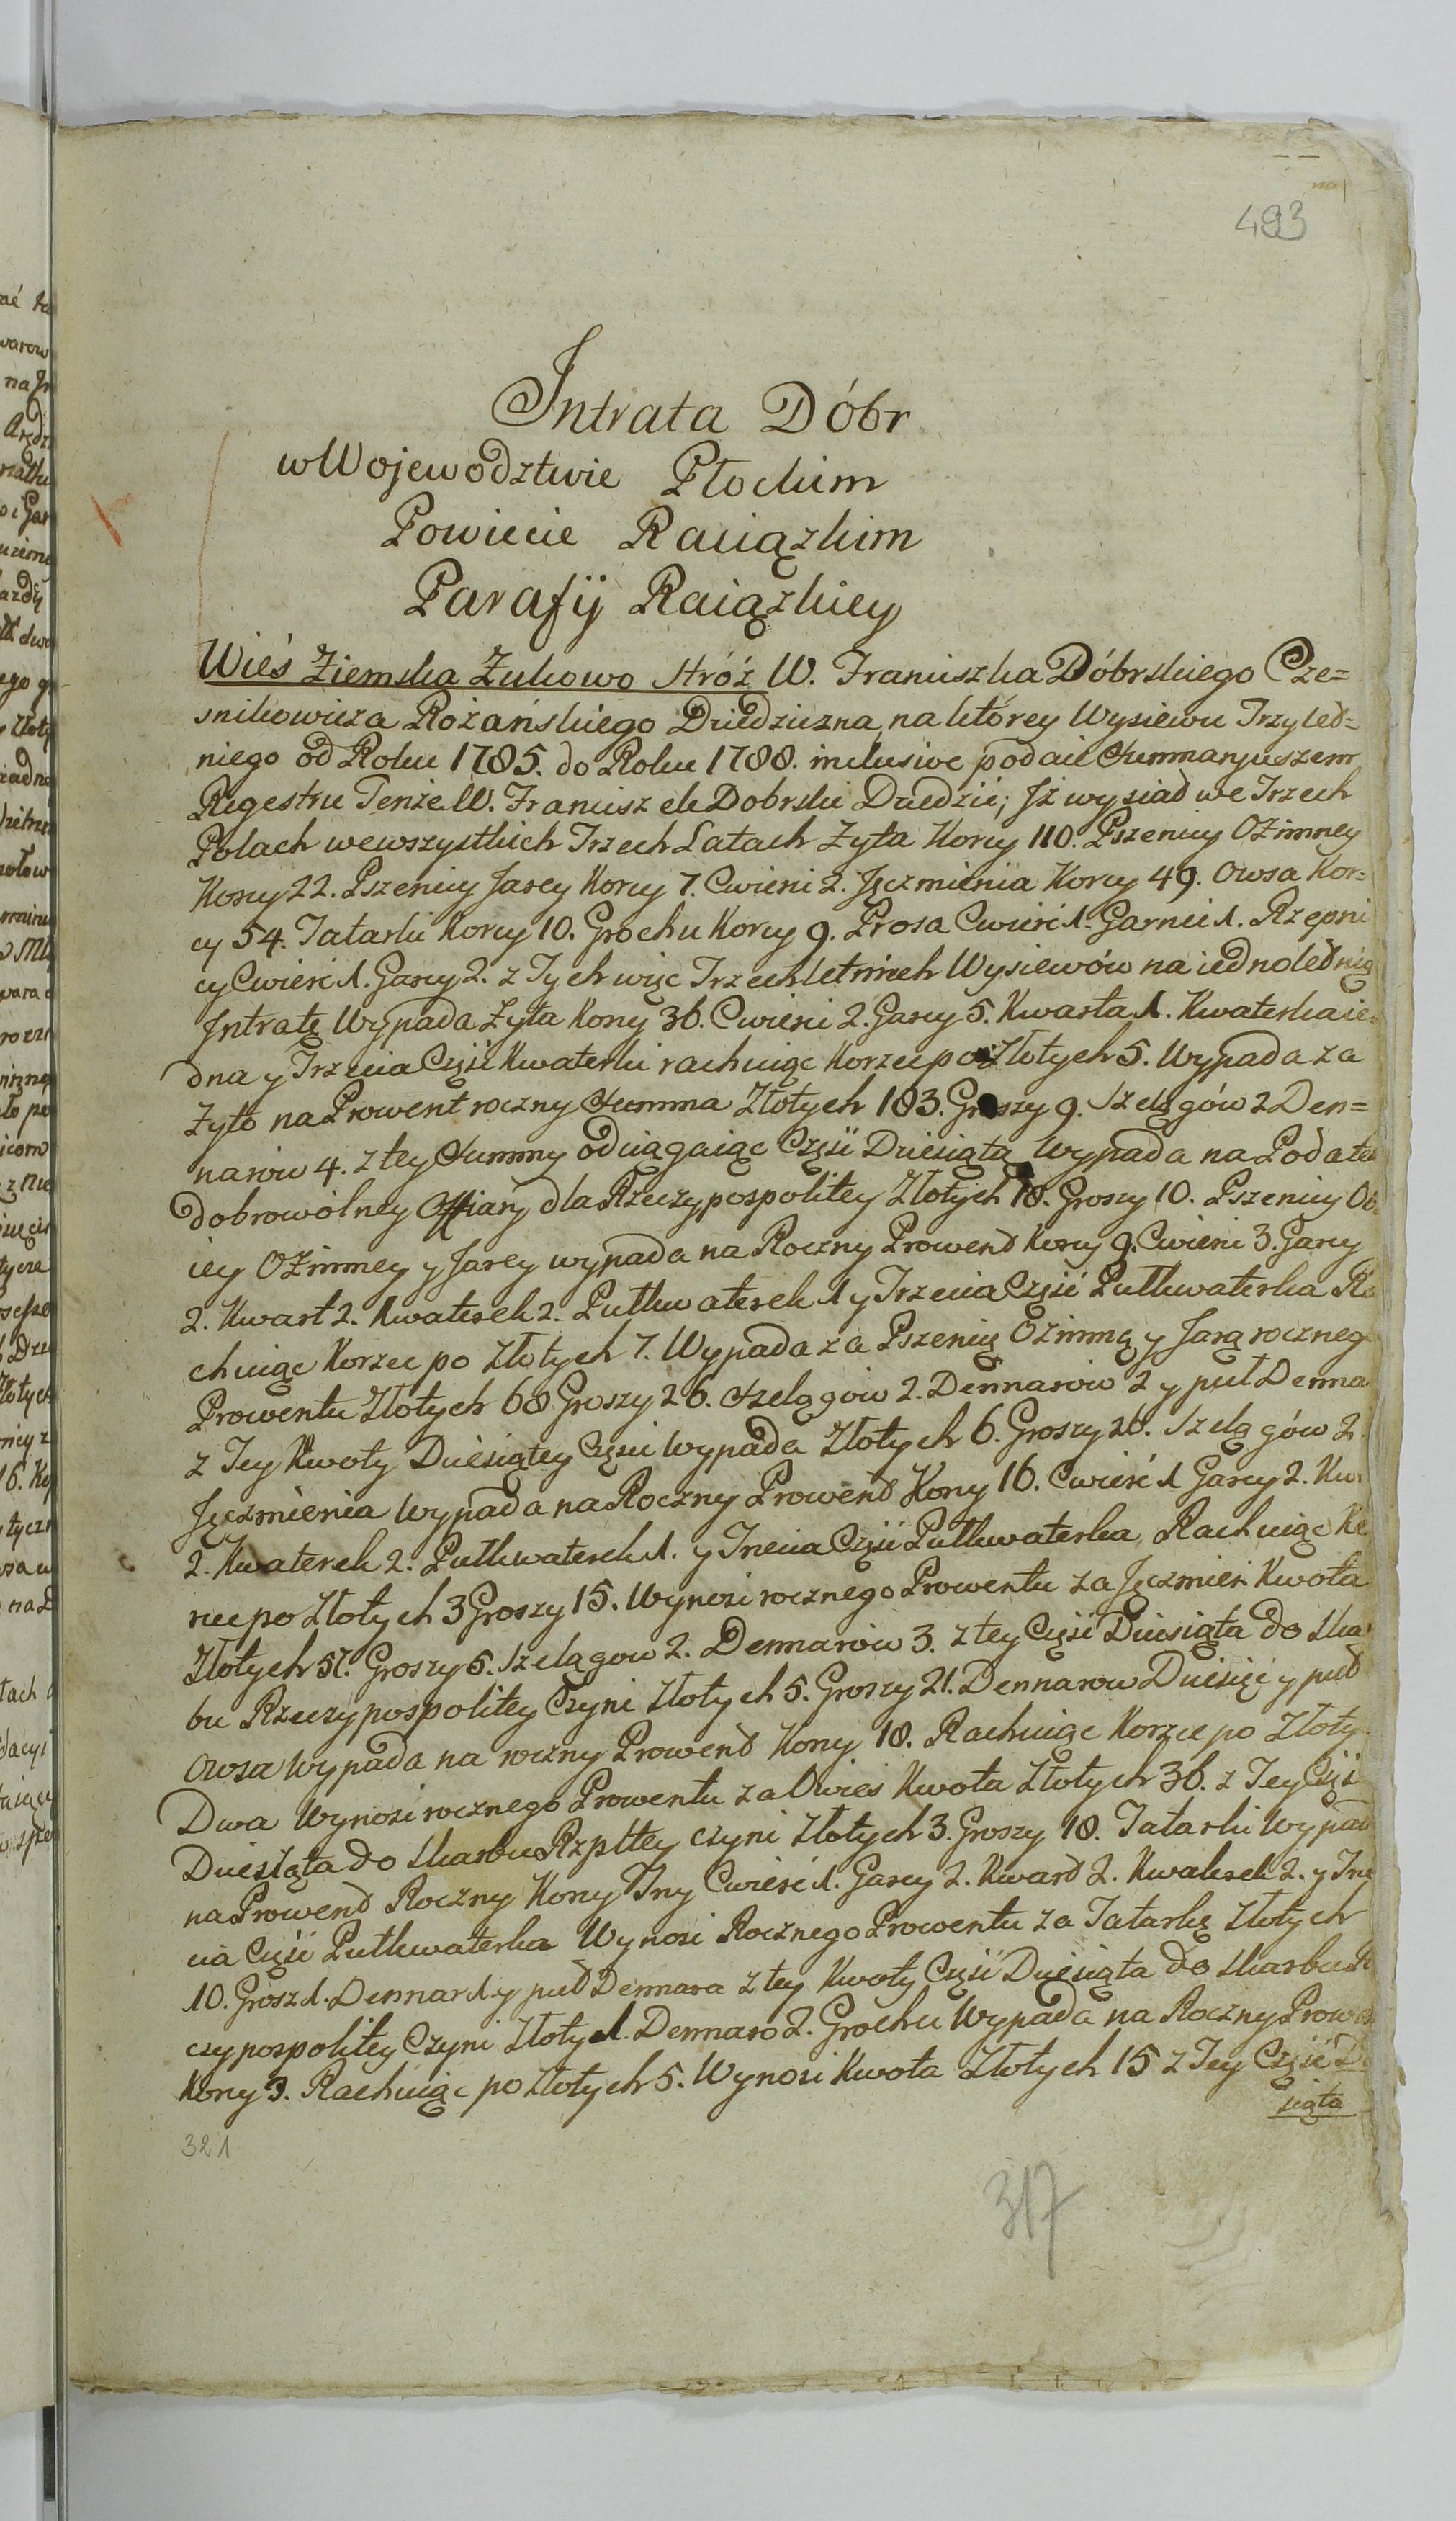 493
Intrata Dóbr
w Wojewodztwie Płockim
Powiecie Raciązkim
Parafÿ Raciązkiey
Wieś Ziemska Zukowo Stróż W. Franciszka Dóbrskiego Cze=
snikowicza Rożańskiego Dziedziczna, na ktorey Wysiewu Trzyled=
niego od Roku 1785. do Roku 1788. inclusive podał Summaryuszem
Regestru Tenże W. Franciszek Dobrski Dziedzic; Iż wysiał we Trzech
Polach wewszystkich Trzech Latach Zyta Korcy 110. Pszenicy Ozimney
Korcy 22. Pszenicy Jarey Korcy 7. Cwierci 2. Jęczmienia Korcy 49. Owsa Kor=
cy 54. Tatarki Korcy 10. Grochu Korcy 9. Prosa Cwierć 1. Garniec 1. Rzepni
cy Cwierć 1. Garcy 2. z Tych więc Trzechletnich Wysiewów na iednoletnią
Intratę Wypada Zyta Korcy 36. Cwierci 2. Garcy 5. Kwarta 1. Kwaterka ie=
dna y Trzecia Część Kwaterki rachuiąc Korzec po Złotych 5. Wypada za
Zyto na Prowent roczny Summa Złotych 183. Groszy 9. Szelągów 2 Den=
narów 4. z tey Summy odciągaiąc Część Dziesiątą Wypada na Podatek
dobrowolney Offiary dla Rzeczypospolitey Złotych 18. Groszy 10. Pszenicy Ob
iey Ozimney y Jarey wypada na Roczny Prowend Korcy 9. Cwierci 3. Garcy
2. Kwart 2. Kwaterek 2. Pułkwaterek 1 y Trzecia Część Pułkwaterka Ra
chuiąc Korzec po Złotych 7. Wypada za Pszenicę Ozimną y Jarą rocznego
Prowentu Złotych 68 Groszy 26. Szelągow 2. Dennarow 2 y puł Denna
z Tey Kwoty Dziesiątey Części Wypada Złotych 6. Groszy 26. Szelągów 2.
Jęczmienia Wypada na Roczny Prowend Korcy 16. Cwierć 1 Garcy 2. Kw
2. Kwaterek 2. Pułkwaterek 1. y Trzecia Część Pułkwaterka, Rachuiąc Ko
rzec po Złotych 3 Groszy 15. Wynosi rocznego Prowentu za Jęczmień Kwota
Złotych 57. Groszy 5. Szelągow 2. Dennarow 3. z tey Część Dziesiąta do Ska
bu Rzeczypospolitey Czyni Złotych 5. Groszy 21. Dennarow Dziesięć y puł
Owsa Wypada na roczny Prowend Korcy 18. Rachuiąc Korzec po Złoty
Dwa Wynosi rocznego Prowentu za Owies Kwota Złotych 36. z Tey Część
Dziesiąta do Skarbu Rzpltey czyni Złotych 3. Groszy 18. Tatarki Wypad
na Prowend Roczny Korcy Trzy Cwierć 1. Garcy 2. Kward 2. Kwaterek 2. y Trze
cia Część Pułkwaterka Wynosi Rocznego Prowentu za Tatarkę Złotych
10. Grosz 1. Dennar 1. y puł Dennara z tey Kwoty Część Dziesiąta do Skarbu R
czypospolitey Czyni Złoty 1. Dennaro 2. Grochu Wypada na Roczny Prow
Korcy 3. Rachuiąc po Złotych 5. Wynosi Kwota Złotych 15 z Tey Część D
siąta
321
317